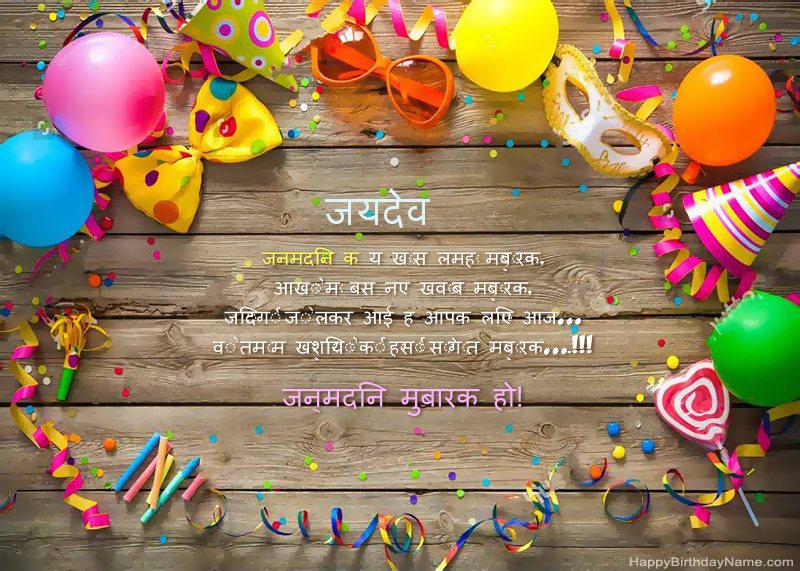 जयदेव
जनमदनि क य ख◌ास लमह◌ा मब◌ारक,
आख◌ो◌ में बस नए खव◌ाब मब◌ारक,
जदिग◌ी ज◌ो लेकर आई ह आपक लएि आज...
व◌ो तम◌ाम खशयि◌ो की हस◌ी स◌ौग◌ात मब◌ारक...!!!
जन्मदनि मुबारक हो!
HappyBirthdayName.com